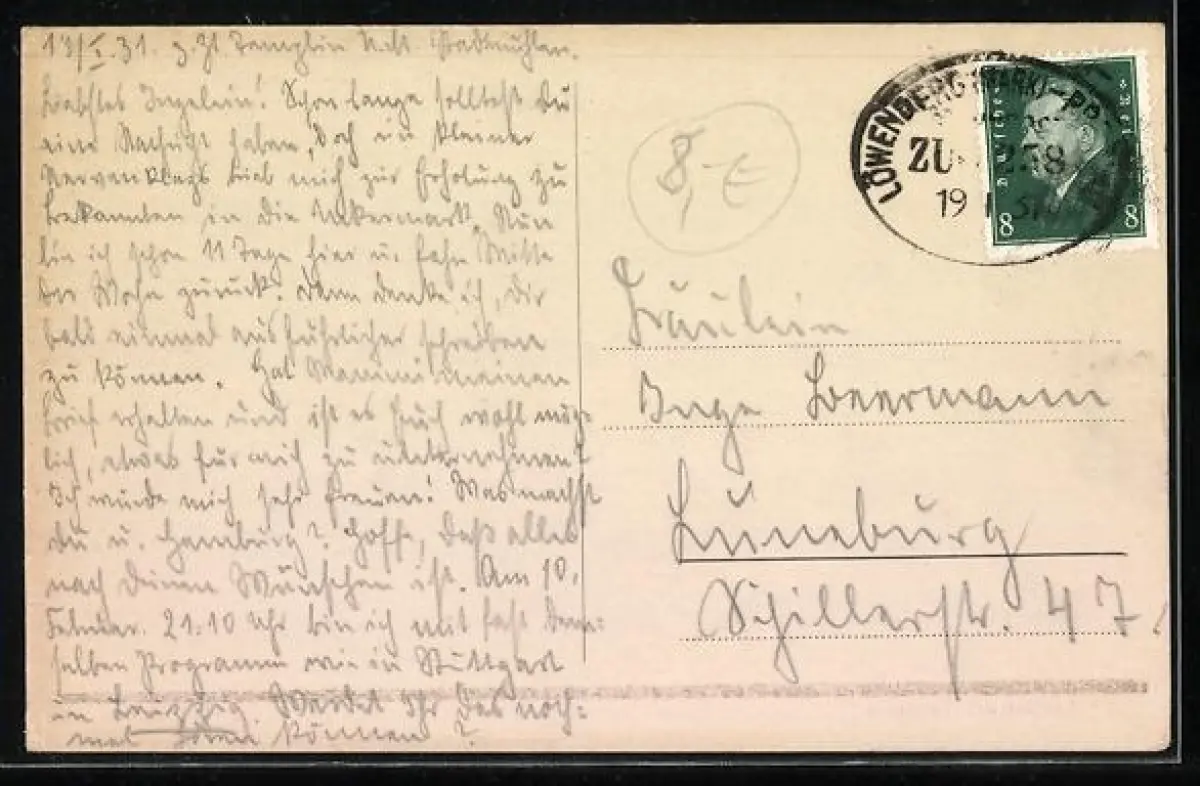 18/I.31. z. Zt. Templin U./M. Stadtmühlen.
Liebstes Ingelein! Schon lange solltest Du
eine Nachricht haben, doch ein kleiner
Nervenklaps trieb mich zur Erholung zu
Bekannten in die Uckermark. Nun
bin ich schon 11 Tage hier u. fahre Mitte
der Woche zurück. Dann denke ich, Dir
bald einmal ausführlicher schreiben
zu können. Hat Mammi meinen
Brief erhalten und ist es Euch wohl mög-
lich, etwas für mich zu unternehmen?
Ich würde mich sehr freuen! Was machst
Du u. Hamburg? Hoffe, daß alles
nach Deinen Wünschen ist. Am 10.
Februar 21.10 Uhr bin ich mit fast dem-
selben Programm wie in Stuttgart
in Leipzig. Werdet Ihr das noch-
mal hören können?
8,- €
LÖWENBERG (MARK)
ZUG
19
Deutsches
8 8
Fräulein
Inge Beermann
Lüneburg
Schillerstr. 47.